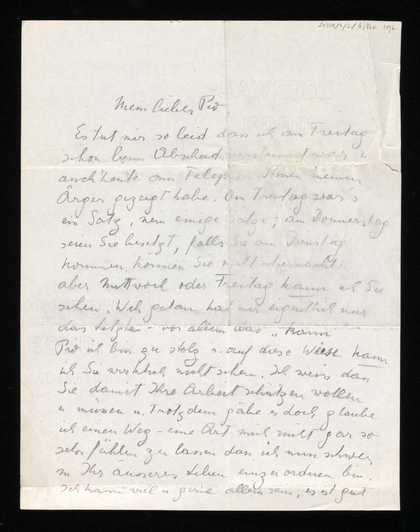 Mein lieber Pio
Es tut mir so leid dass ich am Freitag
schon beim Abschied
auch heute am Ihnen meinen
Ärger gezeigt habe. Am Freitag war's
ein Satz, nein einige Sätze; am Donnerstag
seien Sie besetzt, falls Sie am Dienstag
kommen, können Sie nicht übernachten
aber Mittwoch oder Freitag kann ich Sie
sehen. Weh getan hat mir eigentlich nur
das letzte - vor allem das "kann
Pio ich bin zu stolz u. auf diese Weise kann
ich Sie wirklich nicht sehen. Ich weiss dass
Sie damit Ihre Arbeit schützen wollen
u müssen u. Trotzdem gäbe es doch, glaube
ich einen Weg - eine Art mich nicht gar so
sehr fühlen zu lassen dass ich nun schwer
in Ihr äusseres Leben einzuordnen bin.
Ich kann viel u gerne allein sein, es ist gut